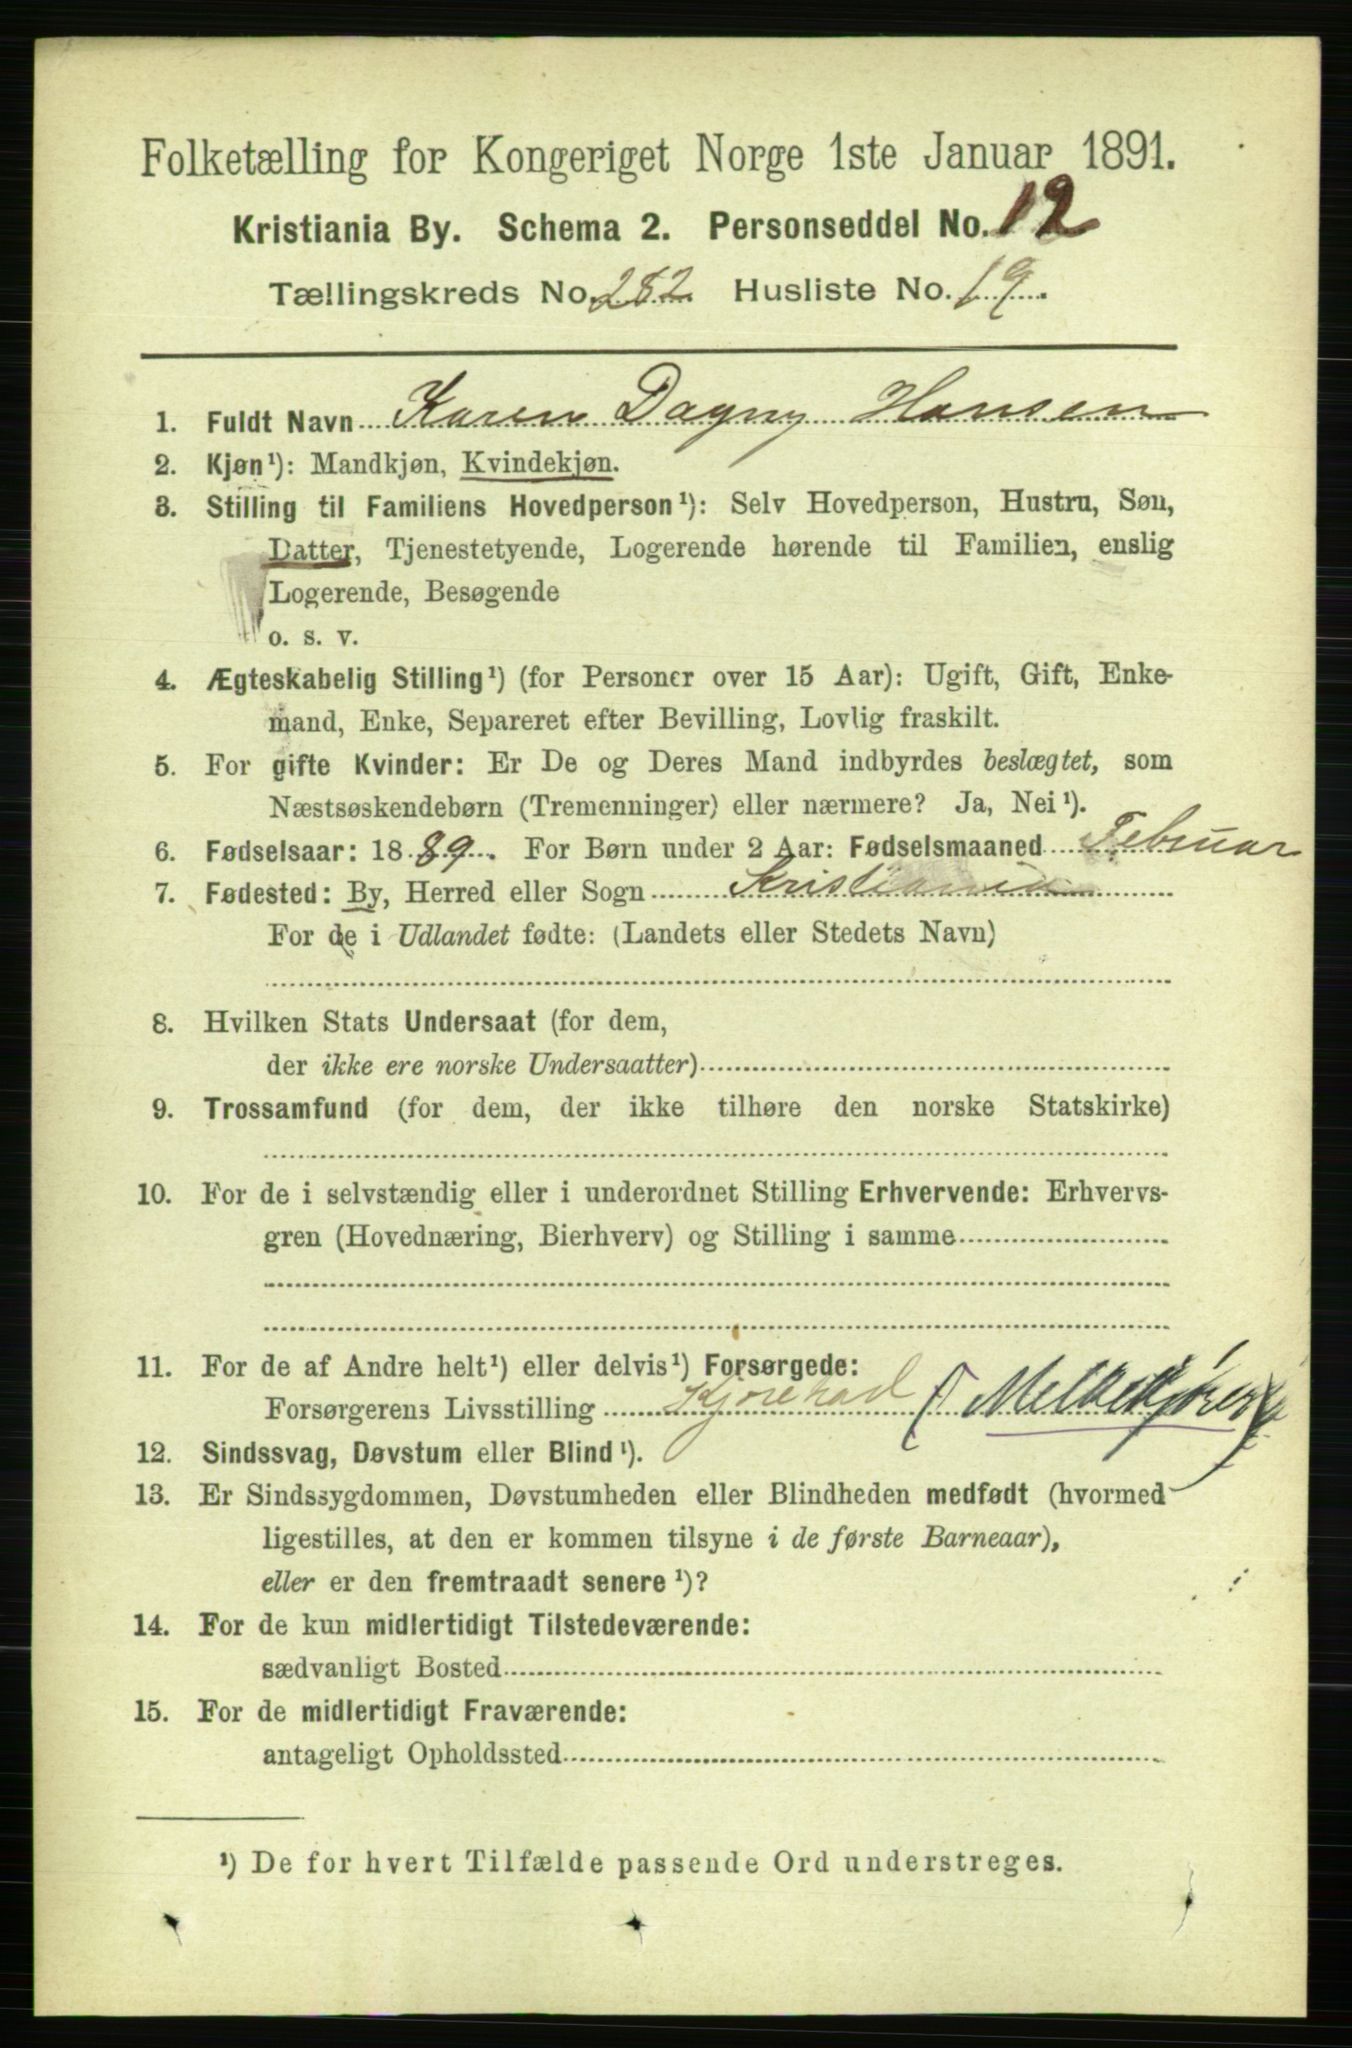 Folketælling for Kongeriget Norge 1ste Januar 1891.
Kristiania By. Schema 2. Personseddel No. 12
Tællingskreds No. 282 Husliste No. 19.
1. Fuldt Navn Karen Dagny Hansen
2. Kjøn¹): Mandkjøn, Kvindekjøn.
3. Stilling til Familiens Hovedperson¹): Selv Hovedperson, Hustru, Søn,
Datter, Tjenestetyende, Logerende hørende til Familien, enslig
Logerende, Besøgende
o. s. v.
4. Ægteskabelig Stilling¹) (for Personer over 15 Aar): Ugift, Gift, Enke-
mand, Enke, Separeret efter Bevilling, Lovlig fraskilt.
5. For gifte Kvinder: Er De og Deres Mand indbyrdes beslægtet, som
Næstsøskendebørn (Tremenninger) eller nærmere? Ja, Nei¹).
6. Fødselsaar: 1889. For Børn under 2 Aar: Fødselsmaaned Februar
7. Fødested: By, Herred eller Sogn Kristiania
For de i Udlandet fødte: (Landets eller Stedets Navn)
8. Hvilken Stats Undersaat (for dem,
der ikke ere norske Undersaatter)
9. Trossamfund (for dem, der ikke tilhøre den norske Statskirke)
10. For de i selvstændig eller i underordnet Stilling Erhvervende: Erhvervs-
gren (Hovednæring, Bierhverv) og Stilling i samme
11. For de af Andre helt¹) eller delvis¹) Forsørgede:
Forsørgerens Livsstilling (Melkekjører)
12. Sindssvag, Døvstum eller Blind¹).
13. Er Sindssygdommen, Døvstumheden eller Blindheden medfødt (hvormed
ligestilles, at den er kommen tilsyne i de første Barneaar),
eller er den fremtraadt senere¹)?
14. For de kun midlertidigt Tilstedeværende:
sædvanligt Bosted
15. For de midlertidigt Fraværende:
antageligt Opholdssted
¹) De for hvert Tilfælde passende Ord understreges.